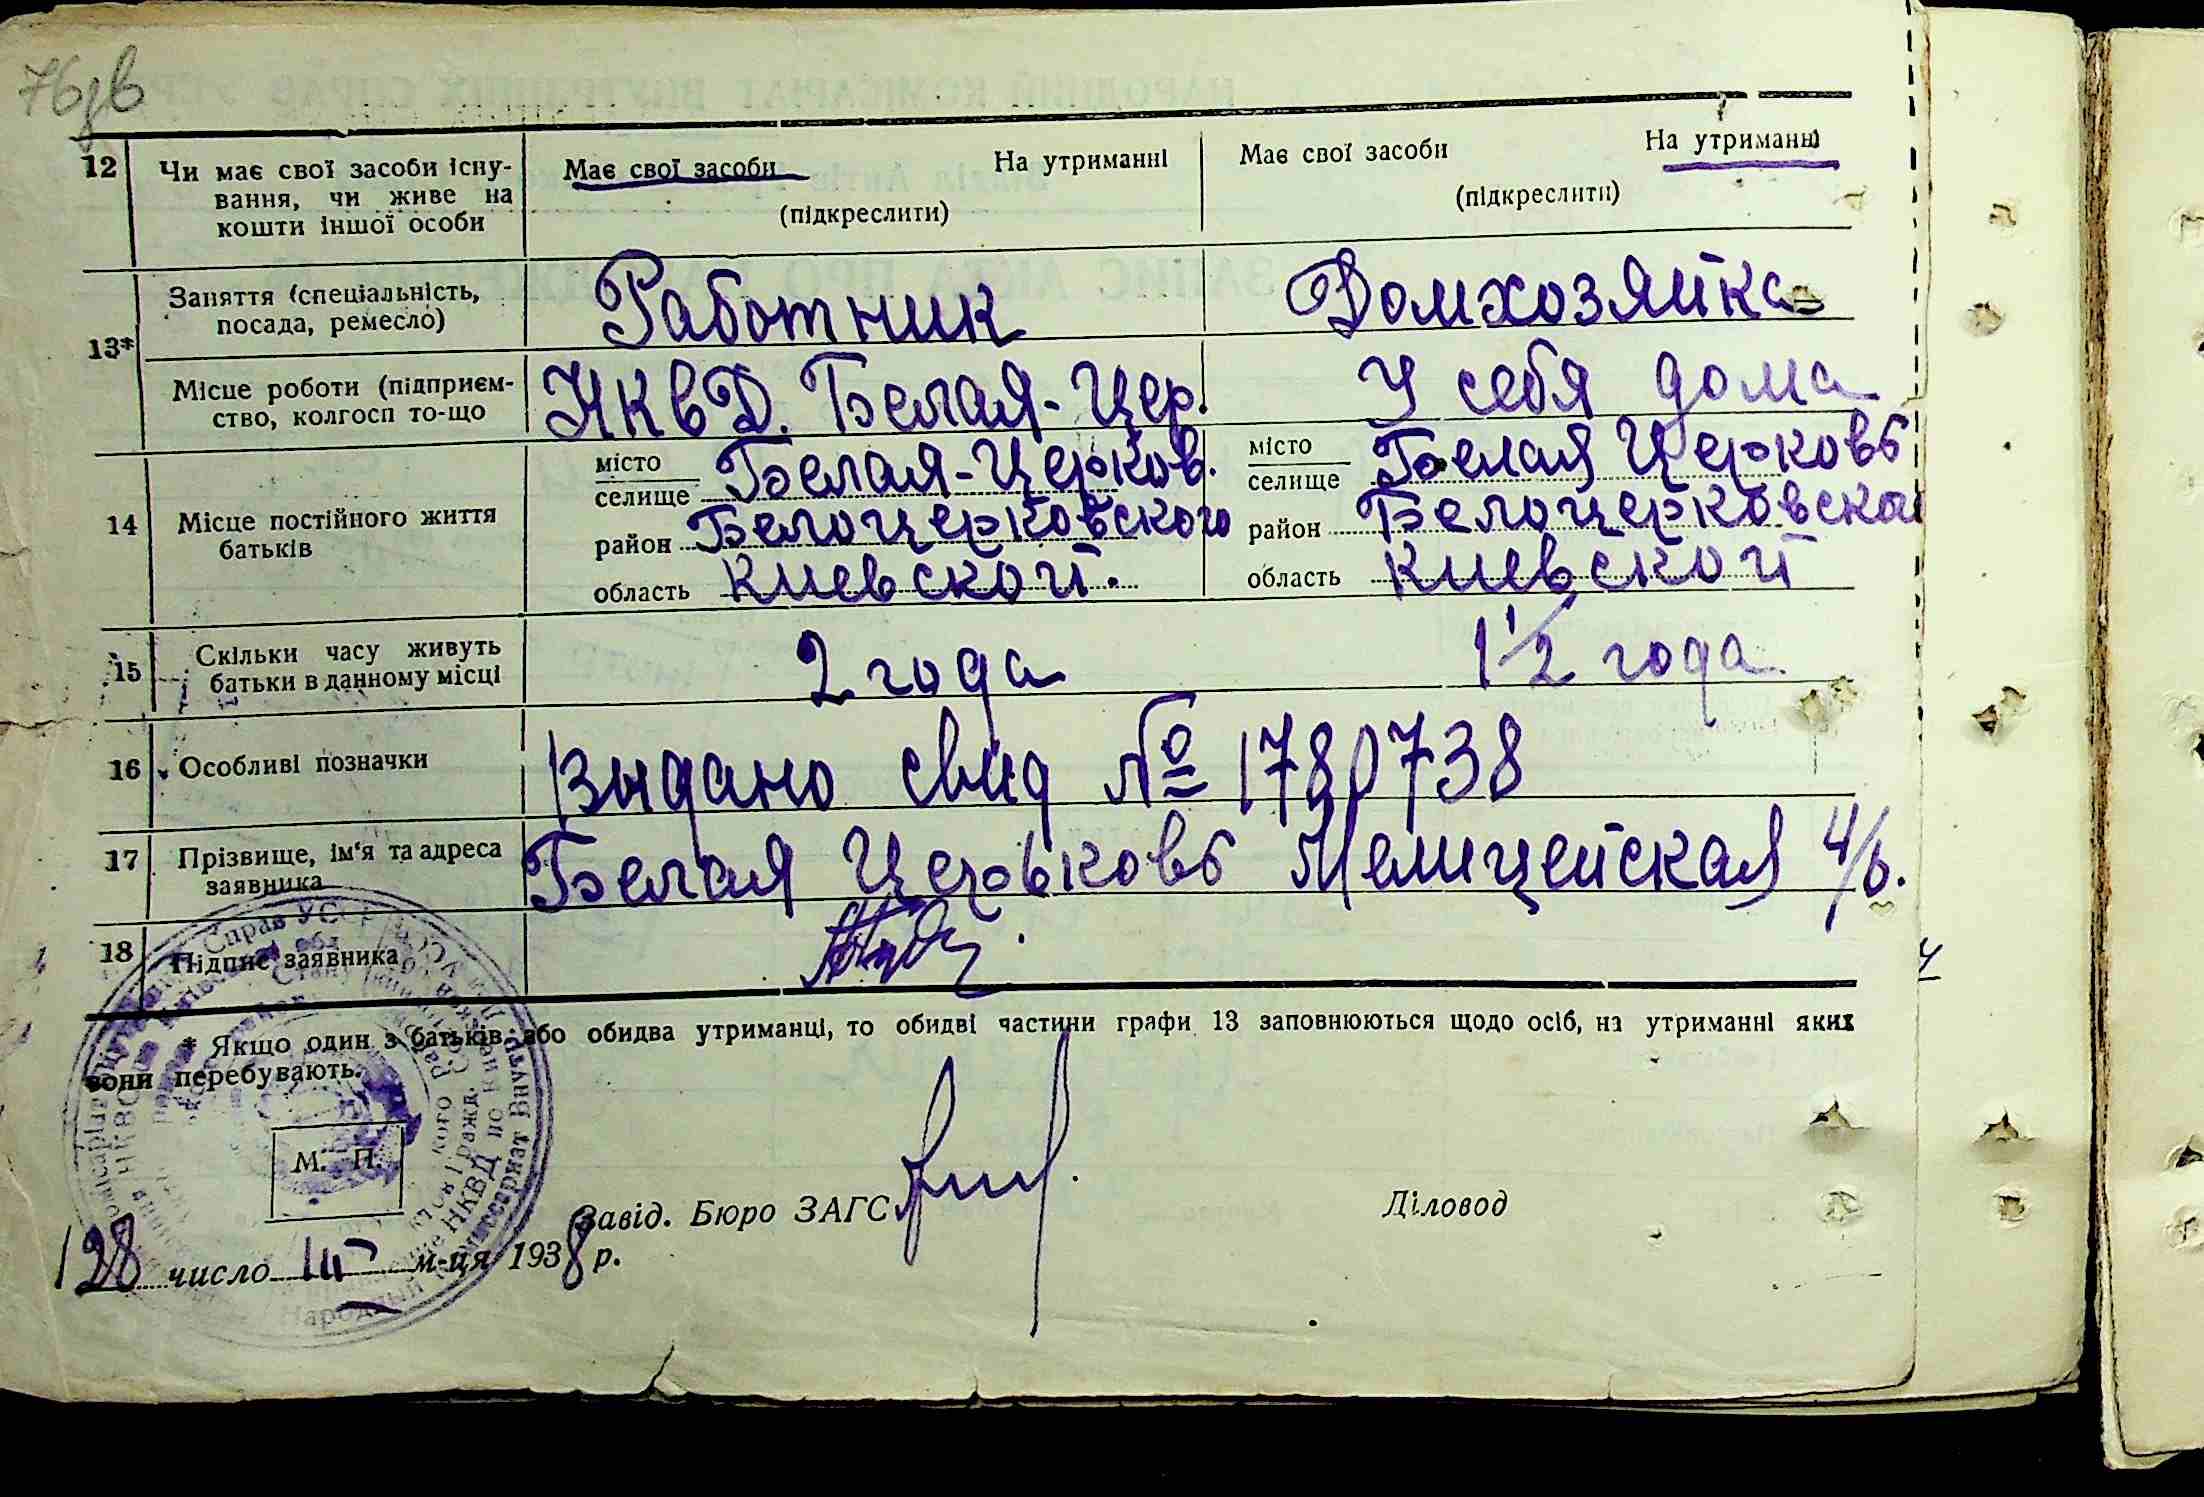 12 Чи має свої засоби існу-
вання, чи живе на
кошти іншої особи
Має свої засоби На утриманні
(підкреслити)
Має свої засоби На утриманні
(підкреслити)
13*
Заняття (спеціальність,
посада, ремесло)
Работник
Домхозяйка
Місце роботи (підприєм-
ство, колгосп то-що
НКВД. Белая-Цер.
У себя дома
14 Місце постійного життя
батьків
місто
селище Белая-Церков.
район Белоцерковского
область Киевской.
місто
селище Белая Церковь
район Белоцерковска
область Киевской
15 Скільки часу живуть
батьки в данному місці
2 года
1 1/2 года
16 Особливі позначки
Выдано свид № 1780738
17 Прізвище, ім'я та адреса
заявника
Белая Церьковь Мелицейская 4/6.
18 Підпис заявника
* Якщо один з батьків або обидва утриманці, то обидві частини графи 13 заповнюються щодо осіб, на утриманні яких
вони перебувають.
М. П.
Завід. Бюро ЗАГС
Діловод
128 число III м-ця 1938 р.